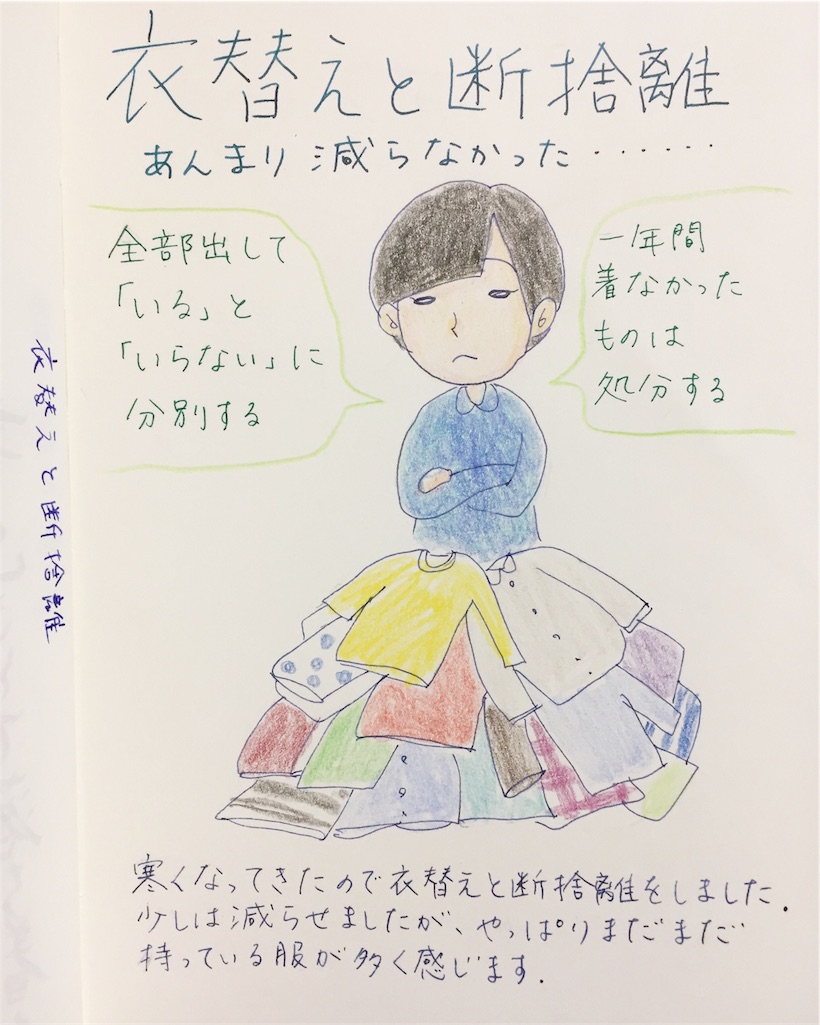 衣替えと断捨離
あんまり減らなかった・・・・・・
全部出して
「いる」と
「いらない」に
分別する
一年間
着なかった
ものは
処分する
衣替えと断捨離
寒くなってきたので衣替えと断捨離をしました.
少しは減らせましたが、やっぱりまだまだ
持っている服が多く感じます.